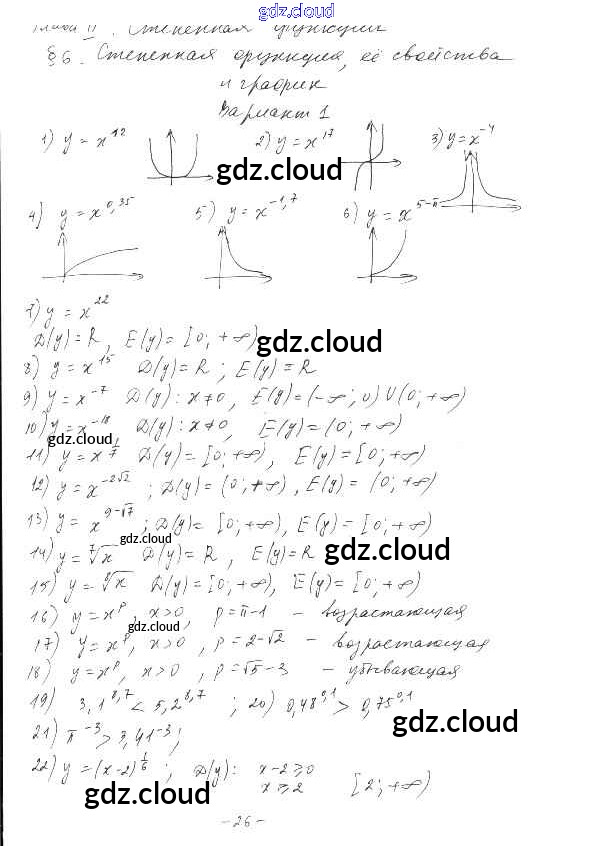 gdz.cloud
Глава II. Степенная функция
§6. Степенная функция, её свойства
и график
Вариант 1
1) y = x^12 2) y = x^17 3) y = x^-4
gdz.cloud
4) y = x^0,35 5) y = x^-1,7 6) y = x^5-π
7) y = x^22
D(y) = R, E(y) = [0; +∞)
gdz.cloud
8) y = x^15 D(y) = R; E(y) = R
9) y = x^-7 D(y): x ≠ 0, E(y) = (-∞; 0) U (0; +∞)
10) y = x^-18, D(y): x ≠ 0, E(y) = (0; +∞)
gdz.cloud
11) y = x^1/7 D(y) = [0; +∞), E(y) = [0; +∞)
12) y = x^-2√2; D(y) = (0; +∞), E(y) = (0; +∞)
13) y = x^9-√7; D(y) = [0; +∞), E(y) = [0; +∞)
gdz.cloud
14) y = ⁷√x D(y) = R, E(y) = R
gdz.cloud
15) y = ⁸√x D(y) = [0; +∞), E(y) = [0; +∞)
16) y = x^p, x > 0, p = π - 1 - возрастающая
gdz.cloud
17) y = x^p, x > 0, p = 2 - √2 - возрастающая
18) y = x^p, x > 0, p = √5 - 3 - убывающая
19) 3,1^8,7 < 5,2^8,7; 20) 0,48^0,1 > 0,75^0,1
gdz.cloud
21) π^-3 > 3,41^-3;
22) y = (x-2)^1/6; D(y): x-2 ≥ 0
x ≥ 2 [2; +∞)
gdz.cloud
gdz.cloud
- 26 -